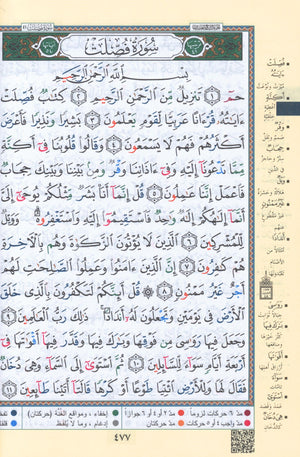 سُورَةُ فُصِّلَتْ
بِسْمِ ٱللَّهِ ٱلرَّحْمَٰنِ ٱلرَّحِيمِ
حمٓ ١ تَنزِيلٌ مِّنَ ٱلرَّحْمَٰنِ ٱلرَّحِيمِ ٢ كِتَٰبٌ فُصِّلَتْ
ءَايَٰتُهُۥ قُرْءَانًا عَرَبِيًّا لِّقَوْمٍ يَعْلَمُونَ ٣ بَشِيرًا وَنَذِيرًا فَأَعْرَضَ
أَكْثَرُهُمْ فَهُمْ لَا يَسْمَعُونَ ٤ وَقَالُوا۟ قُلُوبُنَا فِىٓ أَكِنَّةٍ
مِّمَّا تَدْعُونَآ إِلَيْهِ وَفِىٓ ءَاذَانِنَا وَقْرٌ وَمِنۢ بَيْنِنَا وَبَيْنِكَ حِجَابٌ
فَٱعْمَلْ إِنَّنَا عَٰمِلُونَ ٥ قُلْ إِنَّمَآ أَنَا۠ بَشَرٌ مِّثْلُكُمْ يُوحَىٰٓ إِلَىَّ
أَنَّمَآ إِلَٰهُكُمْ إِلَٰهٌ وَٰحِدٌ فَٱسْتَقِيمُوٓا۟ إِلَيْهِ وَٱسْتَغْفِرُوهُ وَوَيْلٌ
لِّلْمُشْرِكِينَ ٦ ٱلَّذِينَ لَا يُؤْتُونَ ٱلزَّكَوٰةَ وَهُم بِٱلْءَاخِرَةِ
هُمْ كَٰفِرُونَ ٧ إِنَّ ٱلَّذِينَ ءَامَنُوا۟ وَعَمِلُوا۟ ٱلصَّٰلِحَٰتِ لَهُمْ
أَجْرٌ غَيْرُ مَمْنُونٍ ٨ قُلْ أَئِنَّكُمْ لَتَكْفُرُونَ بِٱلَّذِى خَلَقَ
ٱلْأَرْضَ فِى يَوْمَيْنِ وَتَجْعَلُونَ لَهُۥٓ أَندَادًا ذَٰلِكَ رَبُّ ٱلْعَٰلَمِينَ ٩
وَجَعَلَ فِيهَا رَوَٰسِىَ مِن فَوْقِهَا وَبَٰرَكَ فِيهَا وَقَدَّرَ فِيهَآ أَقْوَٰتَهَا فِىٓ
أَرْبَعَةِ أَيَّامٍ سَوَآءً لِّلسَّآئِلِينَ ١٠ ثُمَّ ٱسْتَوَىٰٓ إِلَى ٱلسَّمَآءِ وَهِىَ دُخَانٌ
فَقَالَ لَهَا وَلِلْأَرْضِ ٱئْتِيَا طَوْعًا أَوْ كَرْهًا قَالَتَآ أَتَيْنَا طَآئِعِينَ ١١
٤٧٧